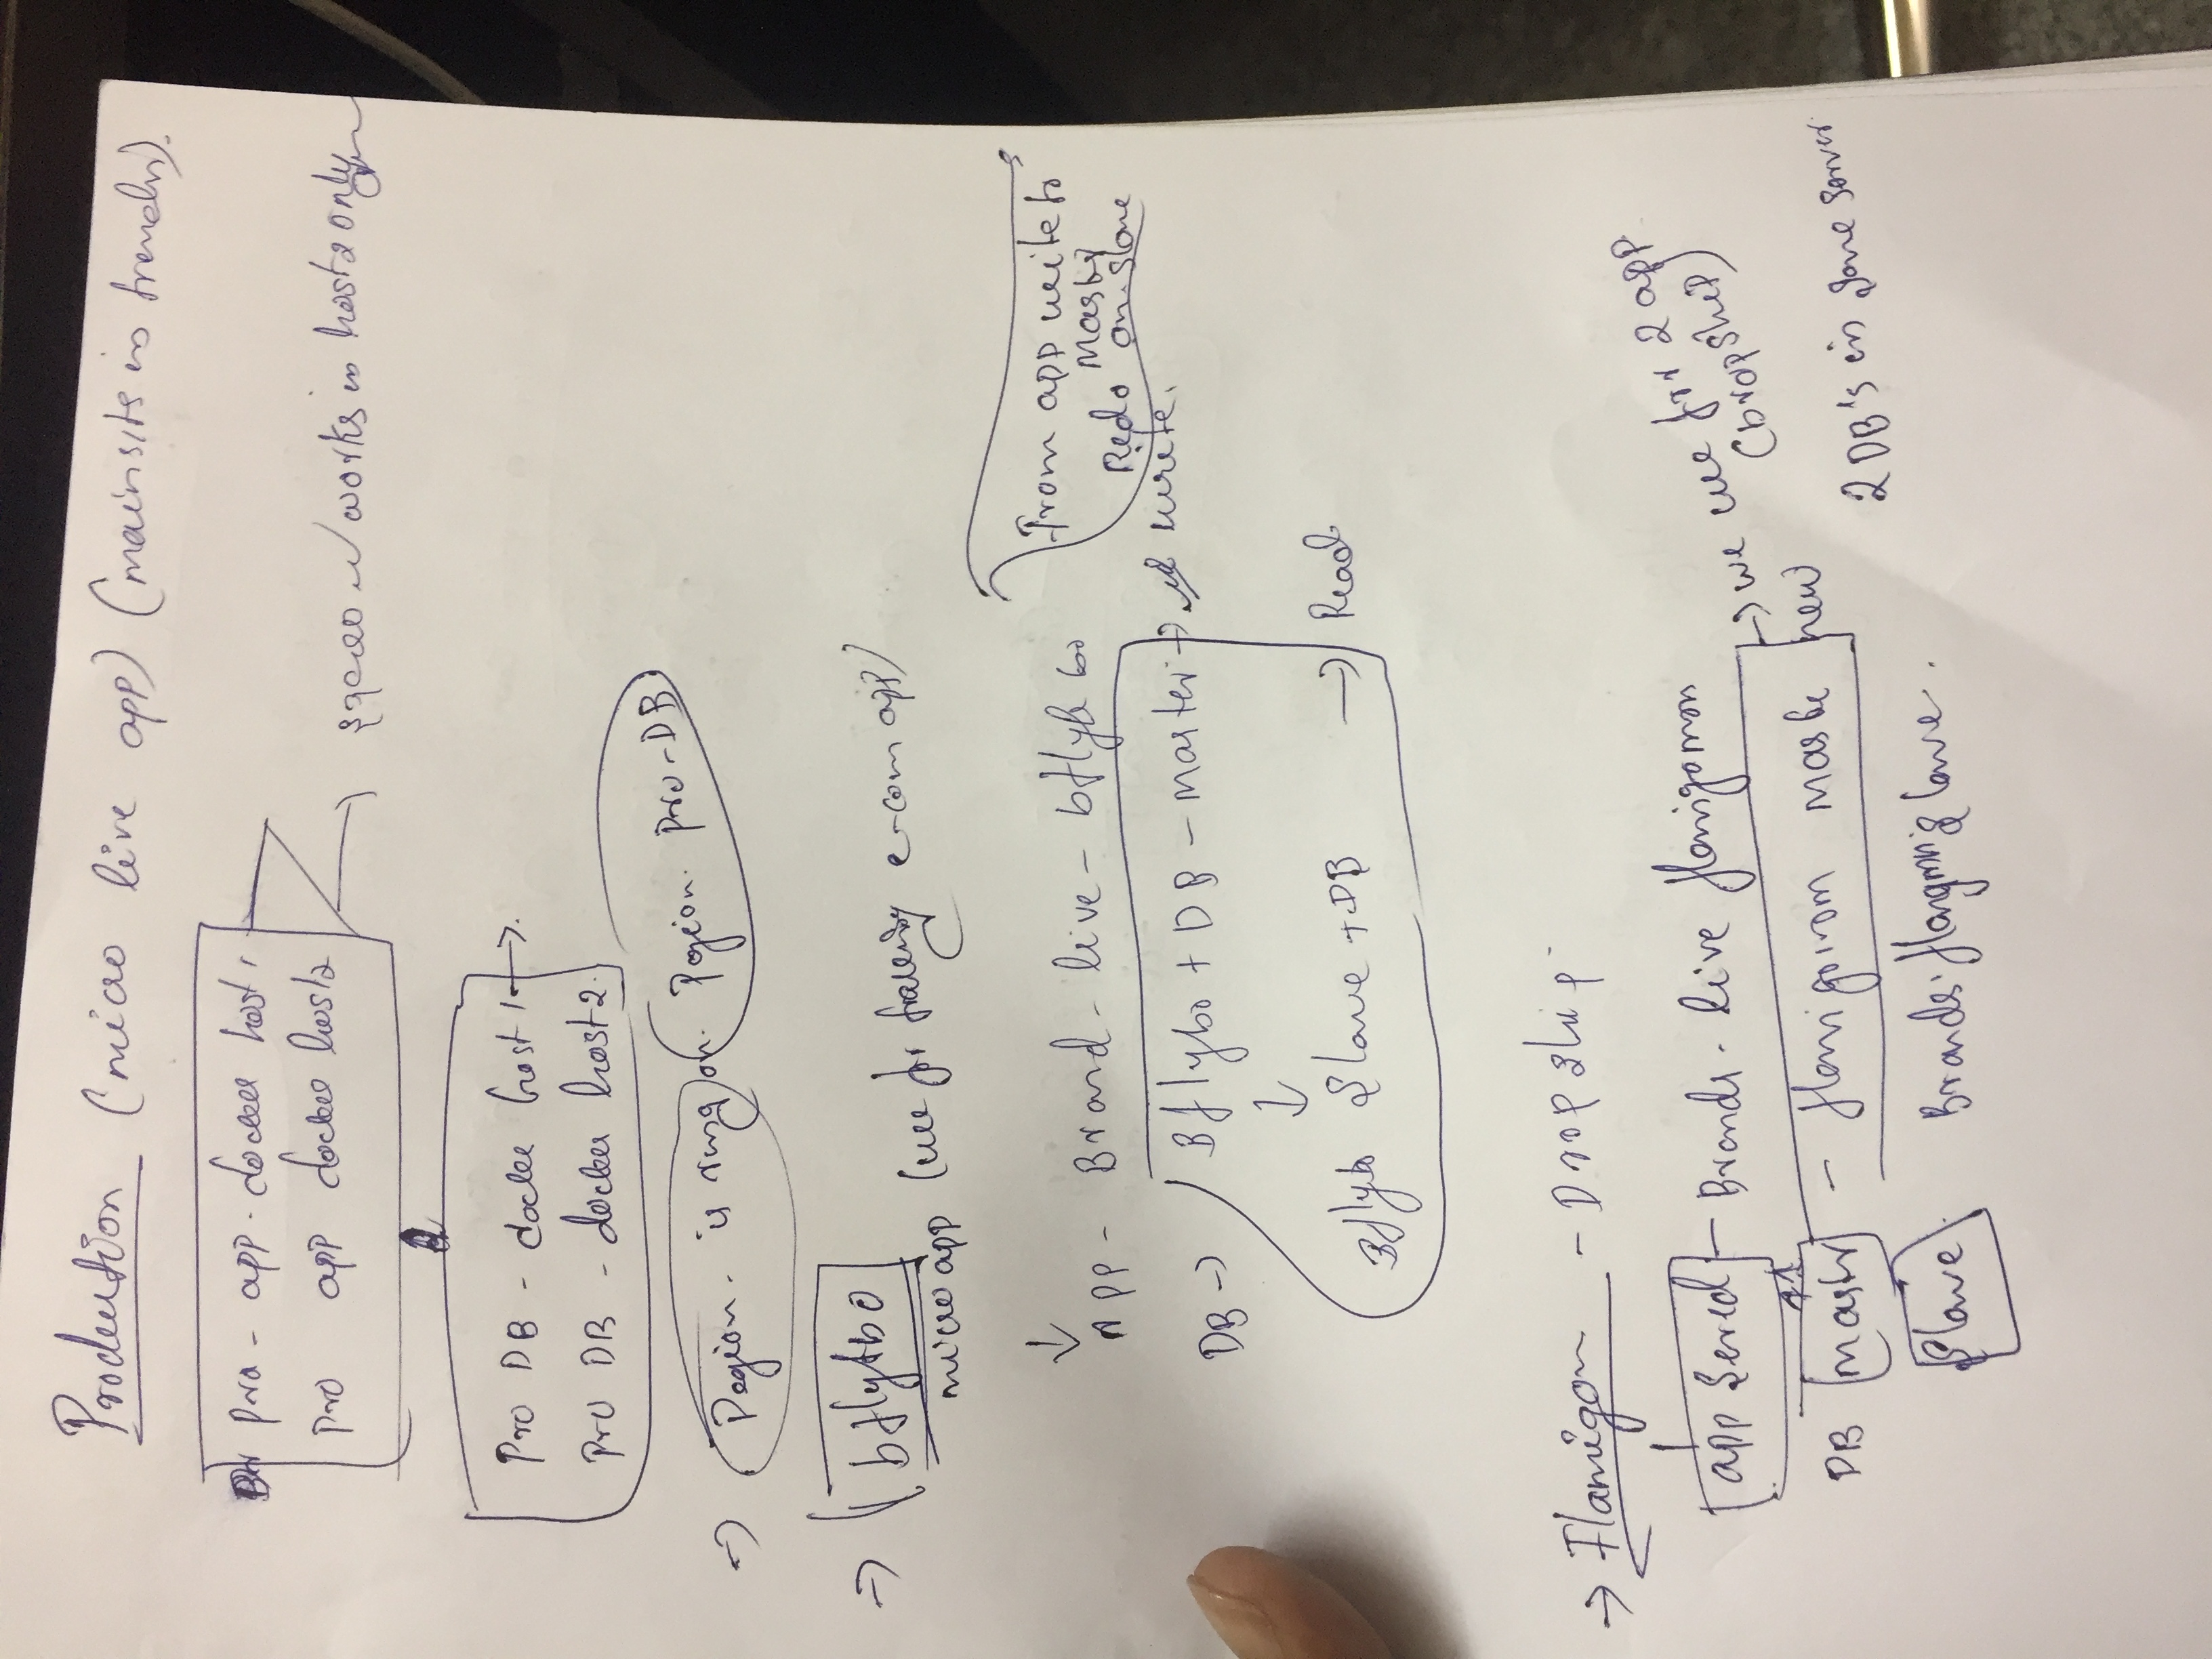 Production (micro live app) (mainsite in
pro - app - docker host 1
pro app docker host2
works in host2 only
Pro DB - docker host 1 →.
Pro DB - docker host2.
→ Pegion. is on. Pegion. Pro-DB
→ bflybo
micro app (use for e-com app)
↓
App - Brand - live - bflybo
From app write to
Master
on slave
DB → Bflybo + DB - master → write.
↓
Bflybo Slave + DB → Read
→ Flamigon - Dropship
app - Brands - live
→ we use for 2 app
(Dropship)
DB master - new
2 DB's in same server
Slave Brands